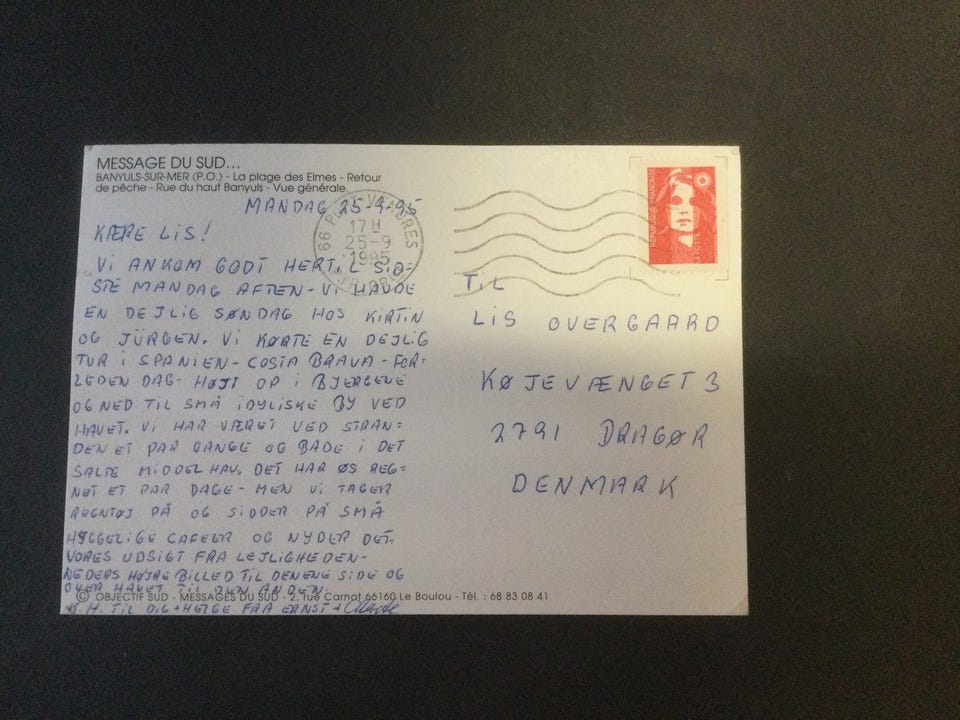 MESSAGE DU SUD...
BANYULS-SUR-MER (P.O.) - La plage des Elmes - Retour
de pêche - Rue du haut Banyuls - Vue générale.
MANDAG 25-9-95
KÆRE LIS!
VI ANKOM GODT HERTIL SID=
STE MANDAG AFTEN - VI HAVDE
EN DEJLIG SØNDAG HOS KIRTIN
OG JÜRGEN. VI KØRTE EN DEJLIG
TUR I SPANIEN - COSTA BRAVA - FOR=
LEDEN DAG - HØJT OP I BJERGENE
OG NED TIL SMÅ IDYLISKE BY VED
HAVET. VI HAR VÆRET VED STRAN=
DEN ET PAR GANGE OG BADE I DET
SALTE MIDDELHAV. DET HAR ØS REG=
NET ET PAR DAGE - MEN VI TAGER
REGNTØJ PÅ OG SIDDER PÅ SMÅ
HYGGELIGE CAFEER OG NYDER DET.
VORES UDSIGT FRA LEJLIGHEDEN -
NEDERS HØJRE BILLED TIL DEN ENE SIDE OG
OVER HAVET TIL DEN ANDEN.
K.H. TIL DIG + HELGE FRA ERNST +
© OBJECTIF SUD - MESSAGES DU SUD - 2, rue Carnot 66160 Le Boulou - Tél. : 68 83 08 41
66 PORT-VENDRES
17 H
25-9
1995
REPUBLIQUE FRANÇAISE
LA POSTE
TIL
LIS OVERGAARD
KØJEVÆNGET 3
2791 DRAGØR
DENMARK